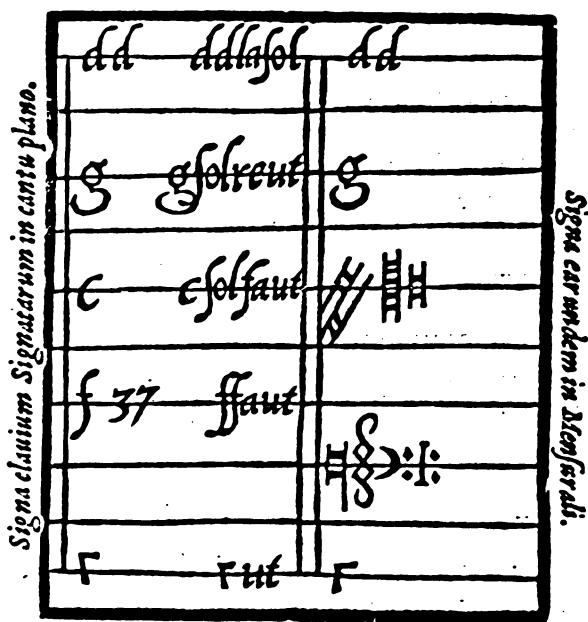 Signa clauium Signatarum in cantu plano.
dd ddlasol dd
g gsolreut g
c csolfaut
f 37 ffaut
Γ Γut Γ
Signa earundem in Mensurali.